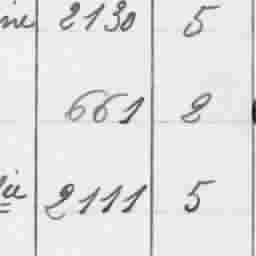 ine 2130 5
661 2
lie 2111 5